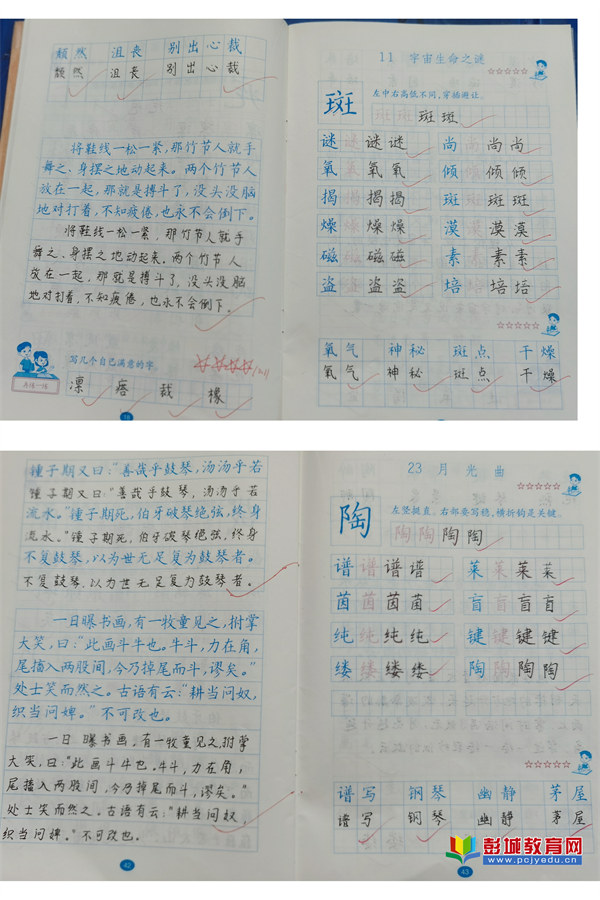 颓然 沮丧 别出心裁
颓然 沮丧 别出心裁
将鞋线一松一紧,那竹节人就手
舞之、身摆之地动起来。两个竹节人
放在一起,那就是搏斗了,没头没脑
地对打着,不知疲倦,也永不会倒下。
将鞋线一松一紧,那竹节人就手
舞之、身摆之地动起来。两个竹节人
放在一起,那就是搏斗了,没头没脑
地对打着,不知疲倦,也永不会倒下。
写几个自己满意的字。
凛 痞 裁 橡
11 宇宙生命之谜
☆☆☆☆☆
左中右高低不同,穿插避让。
斑 斑 斑 斑 斑
谜 谜 谜 谜 尚 尚 尚 尚
氧 氧 氧 氧 倾 倾 倾 倾
揭 揭 揭 揭 斑 斑 斑 斑
燥 燥 燥 燥 漠 漠 漠 漠
磁 磁 磁 磁 素 素 素 素
盗 盗 盗 盗 培 培 培 培
☆☆☆☆☆
氧气 神秘 斑点 干燥
氧气 神秘 斑点 干燥
锺子期又曰:“善哉乎鼓琴,汤汤乎若
锺子期又曰:“善哉乎鼓琴,汤汤乎若
流水。”锺子期死,伯牙破琴绝弦,终身
流水。”锺子期死,伯牙破琴绝弦,终身
不复鼓琴,以为世无足复为鼓琴者。
不复鼓琴,以为世无足复为鼓琴者。
一日曝书画,有一牧童见之,拊掌
大笑,曰:“此画斗牛也。牛斗,力在角,
尾搐入两股间,今乃掉尾而斗,谬矣。”
处士笑而然之。古语有云:“耕当问奴,
织当问婢。”不可改也。
一日曝书画,有一牧童见之,拊掌
大笑,曰:“此画斗牛也。牛斗,力在角,
尾搐入两股间,今乃掉尾而斗,谬矣。”
处士笑而然之。古语有云:“耕当问奴,
织当问婢。”不可改也。
42
23 月光曲
☆☆☆☆☆
左竖挺直,右部要写稳,横折钩是关键。
陶 陶 陶 陶 陶
谱 谱 谱 谱 莱 莱 莱 莱
茵 茵 茵 茵 盲 盲 盲 盲
纯 纯 纯 纯 键 键 键 键
缕 缕 缕 缕 陶 陶 陶 陶
☆☆☆☆☆
谱写 钢琴 幽静 茅屋
谱写 钢琴 幽静 茅屋
43
彭城教育网
www.pcjyedu.cn